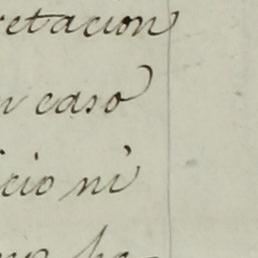 retacion
n caso
icio ni